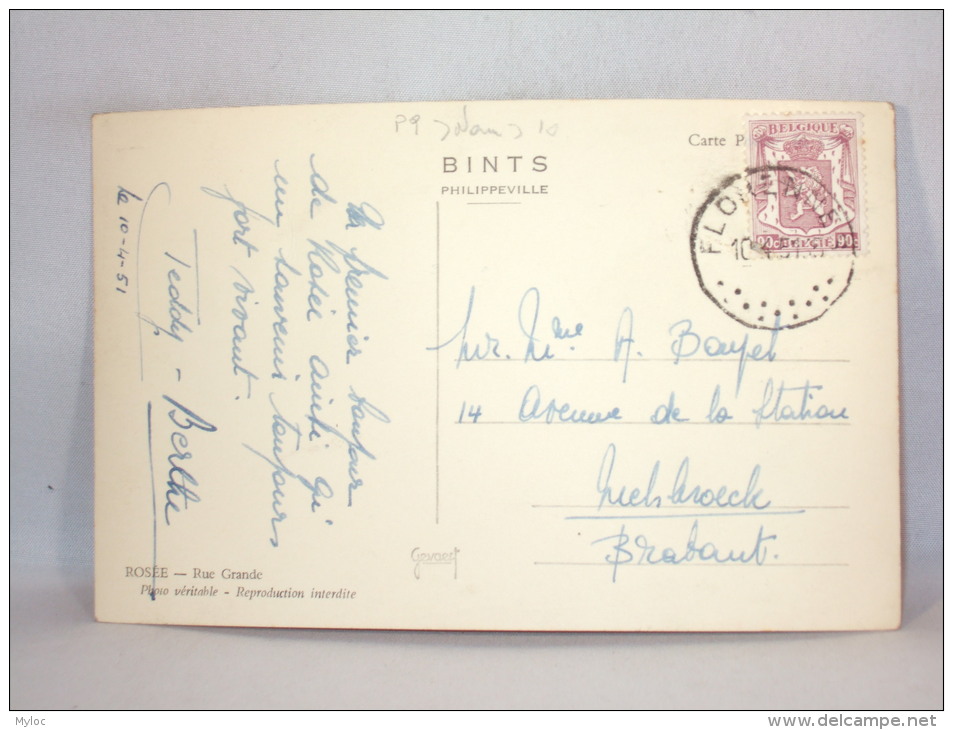 P9 > Nam > 10
BINTS
PHILIPPEVILLE
Carte P
BELGIQUE
90c BELGIE 90c
FLORENNE
10
Un premier bonjour
de Rosée ainsi qi
un souvenir toujours
fort vivant.
Teddy - Berthe
le 10-4-51
Mr. Mme A. Bayet
14 Avenue de la Station
Melsbroeck
Brabant.
Gevaert
ROSÉE — Rue Grande
Photo véritable - Reproduction interdite
Myloc
delcampe.net